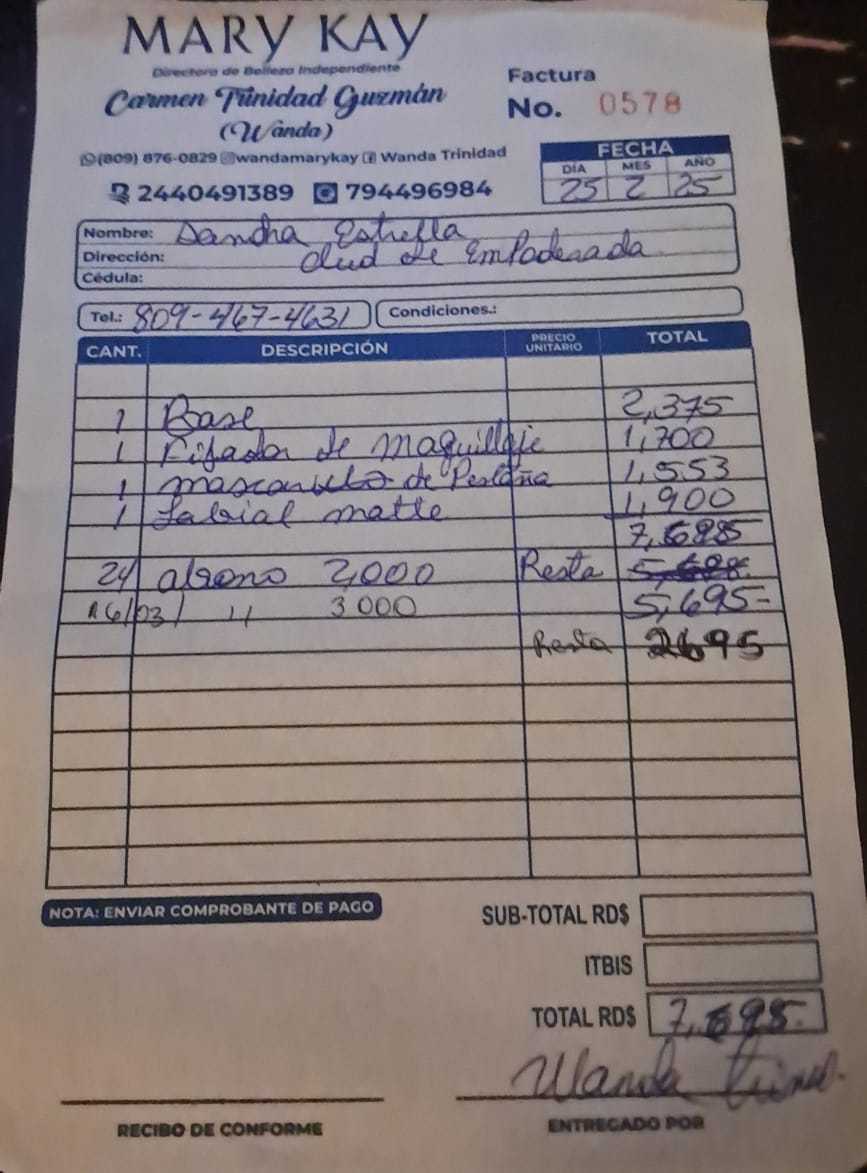 MARY KAY
Directora de Belleza Independiente
Carmen Trinidad Guzmán
(Wanda)
(809) 876-0829 wandamarykay Wanda Trinidad
2440491389 794496984
Factura
No. 0578
FECHA
DÍA MES AÑO
25 2 25
Nombre: Sancha Estrella
Dirección: Clud de Empoderada
Cédula:
Tel.: 809-467-4631 Condiciones.:
CANT. DESCRIPCIÓN PRECIO UNITARIO TOTAL
1 Base 2,375
1 Fijador de maquillaje 1,700
1 de Pestaña 1,553
1 Labial matte 1,900
24 abono 2,000 Resta
16/03/ 11 3000 5,695-
Resta 2695
NOTA: ENVIAR COMPROBANTE DE PAGO
SUB-TOTAL RD$
ITBIS
TOTAL RD$
Wanda
RECIBO DE CONFORME
ENTREGADO POR